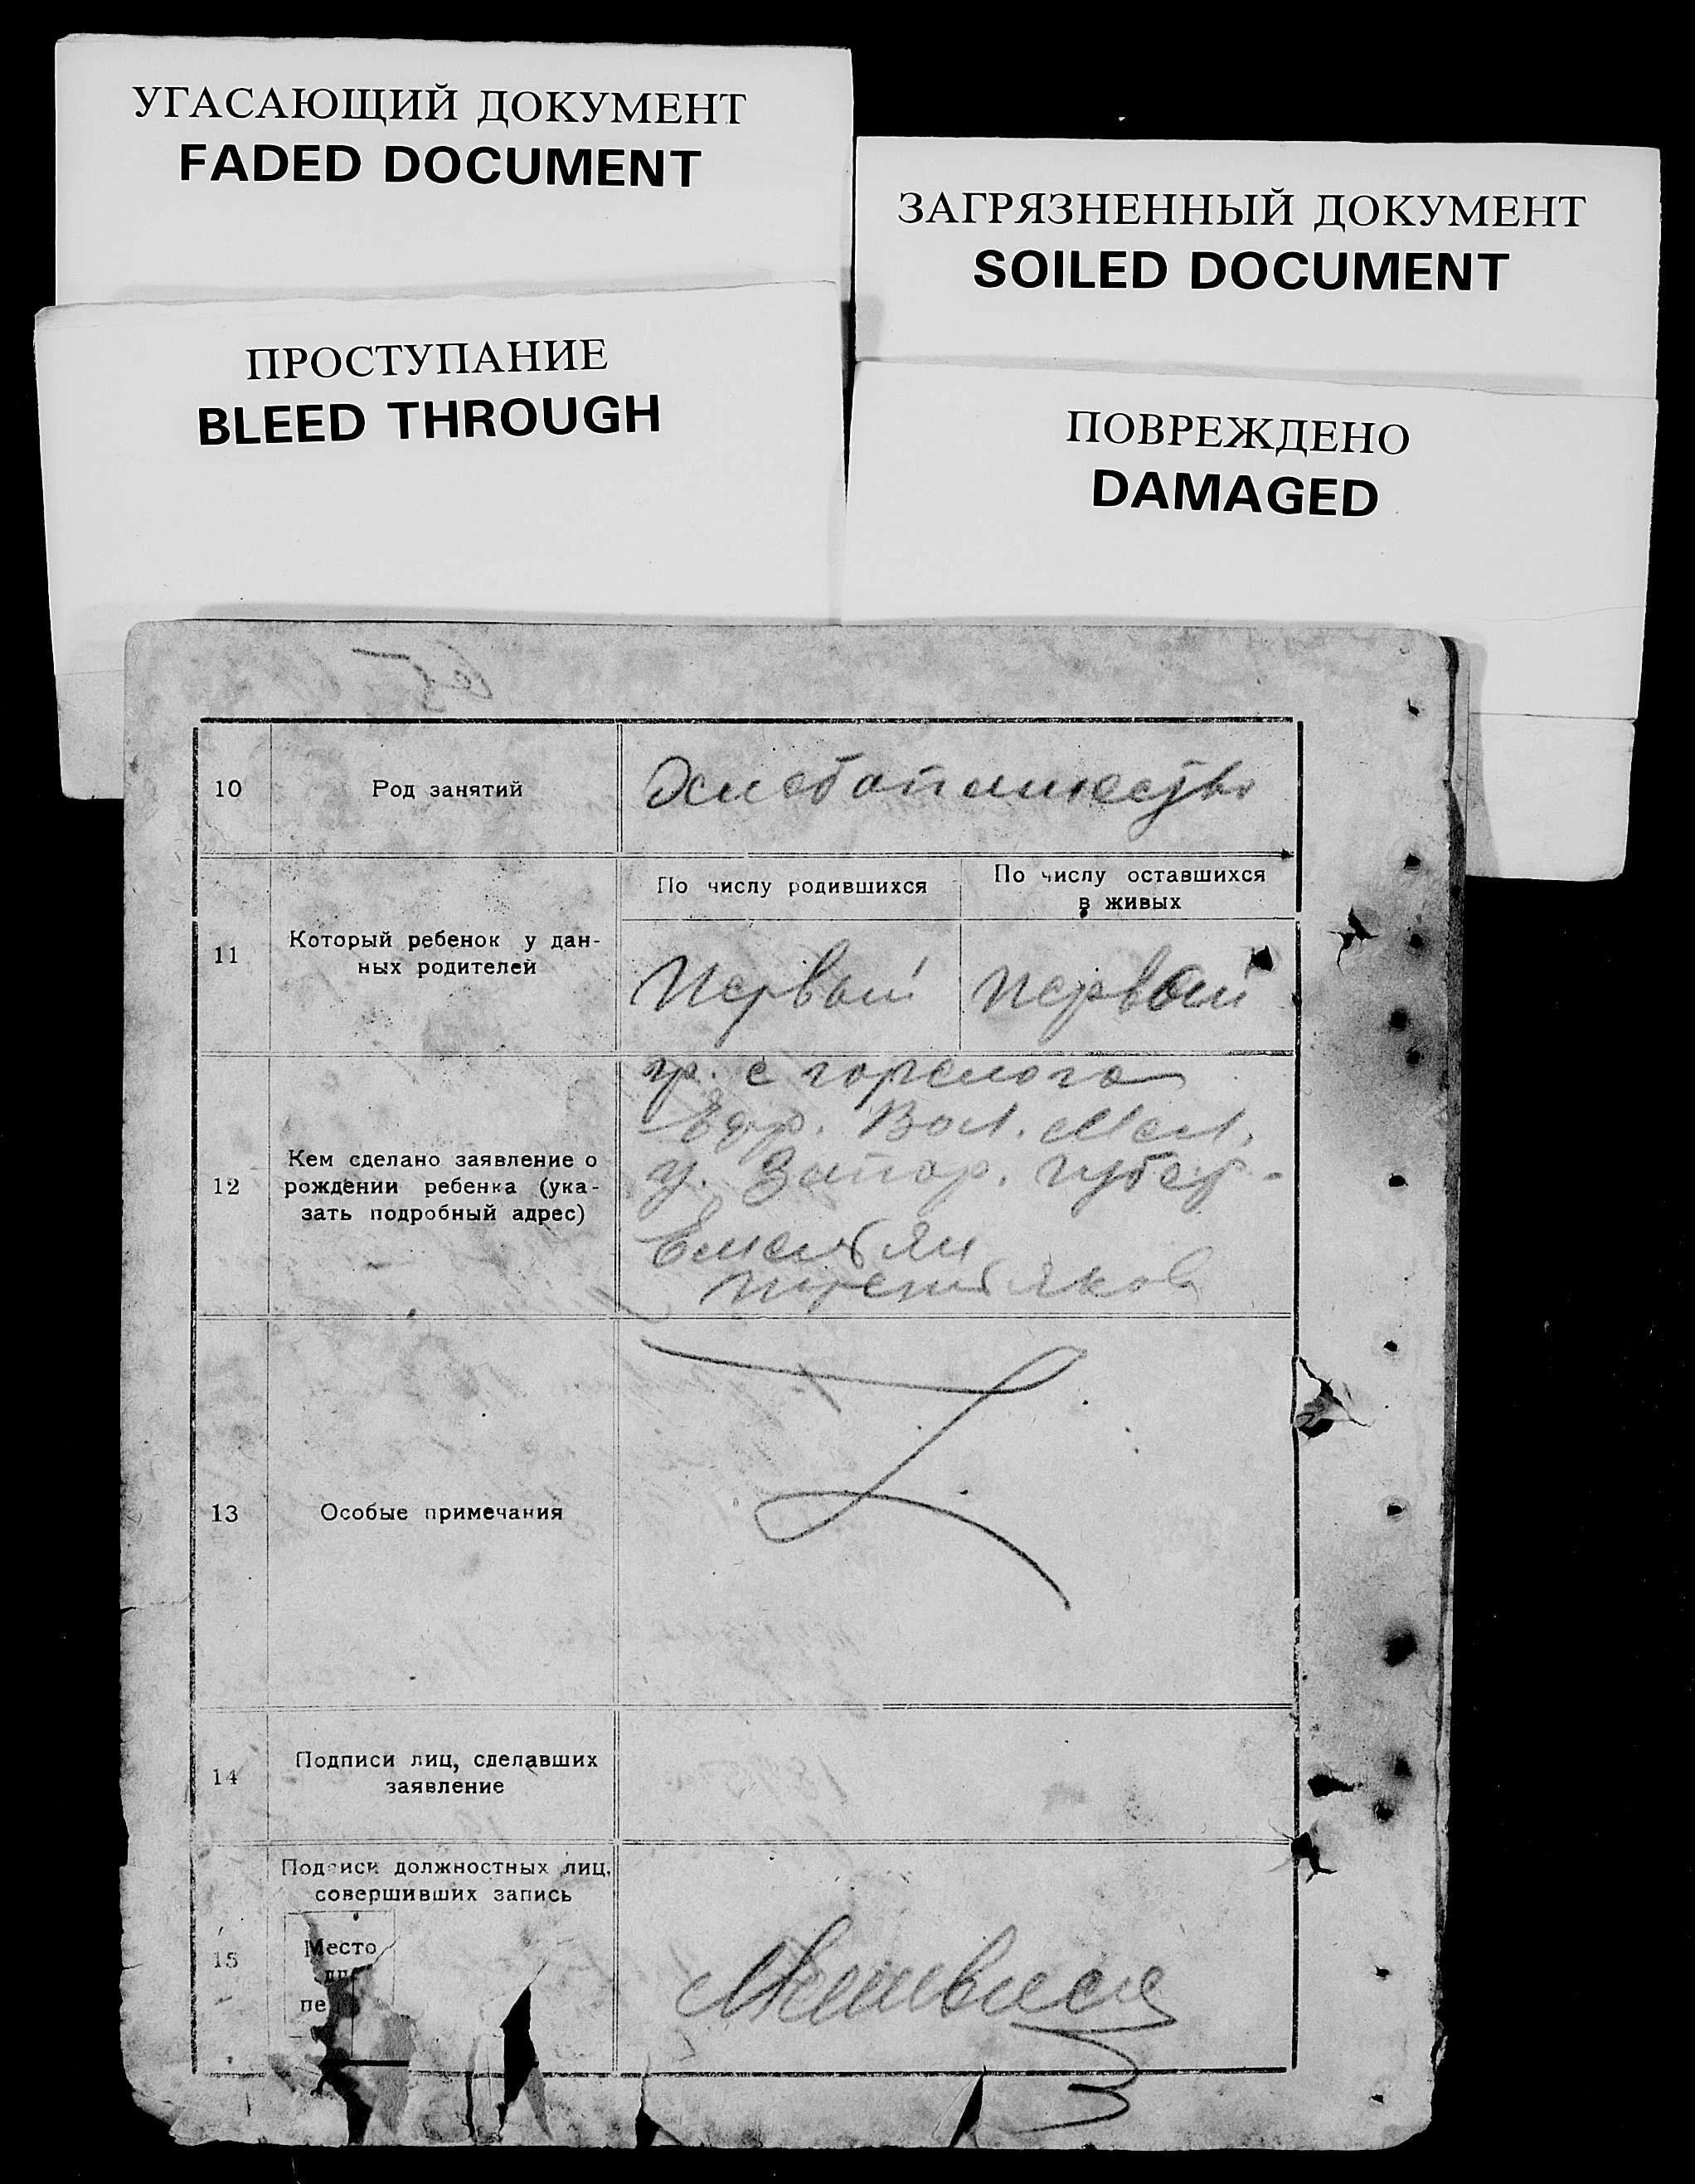 УГАСАЮЩИЙ ДОКУМЕНТ
FADED DOCUMENT
ЗАГРЯЗНЕННЫЙ ДОКУМЕНТ
SOILED DOCUMENT
ПРОСТУПАНИЕ
BLEED THROUGH
ПОВРЕЖДЕНО
DAMAGED
10
Род занятий
11
Который ребенок у дан-
ных родителей
По числу родившихся
По числу оставшихся
в живых
Первый
первый
12
Кем сделано заявление о
рождении ребенка (ука-
зать подробный адрес)
гр. с горелога
Ефр. Вол. Мел.
у. Запор. губер-
Емельян
третьяков
13
Особые примечания
14
Подписи лиц, сделавших
заявление
15
Подписи должностных лиц,
совершивших запись
Место
пе